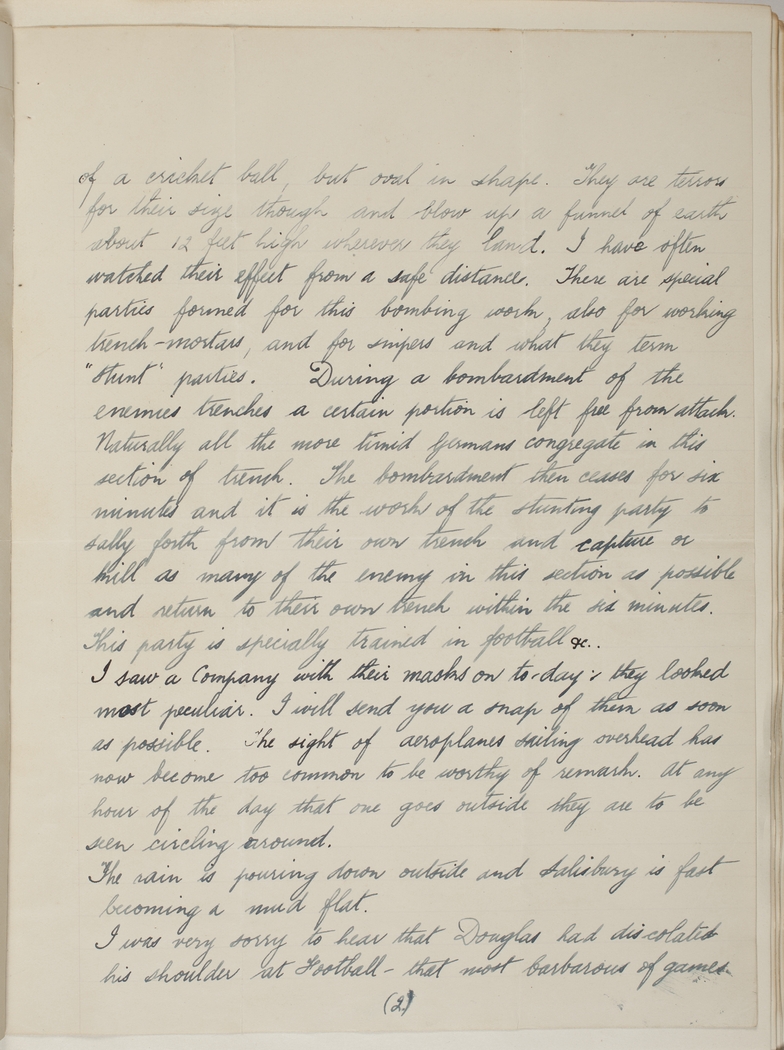 of a cricket ball, but oval in shape. They are terrors
for their size though and blow up a funnel of earth
about 12 feet high wherever they land. I have often
watched their effect from a safe distance. There are special
parties formed for this bombing work, also for working
trench-mortars, and for snipers and what they term
"stunt" parties. During a bombardment of the
enemies trenches a certain portion is left free from attack.
Naturally all the more timid Germans congregate in this
section of trench. The bombardment then ceases for six
minutes and it is the work of the stunting party to
sally forth from their own trench and capture or
kill as many of the enemy in this section as possible
and return to their own trench within the six minutes.
This party is specially trained in football &c..
I saw a Company with their masks on to-day; they looked
most peculiar. I will send you a snap of them as soon
as possible. The sight of aeroplanes sailing overhead has
now become too common to be worthy of remark. At any
hour of the day that one goes outside they are to be
seen circling around.
The rain is pouring down outside and Salisbury is fast
becoming a mud flat.
I was very sorry to hear that Douglas had discolated
his shoulder at Football - that most barbarous of games.
(2)